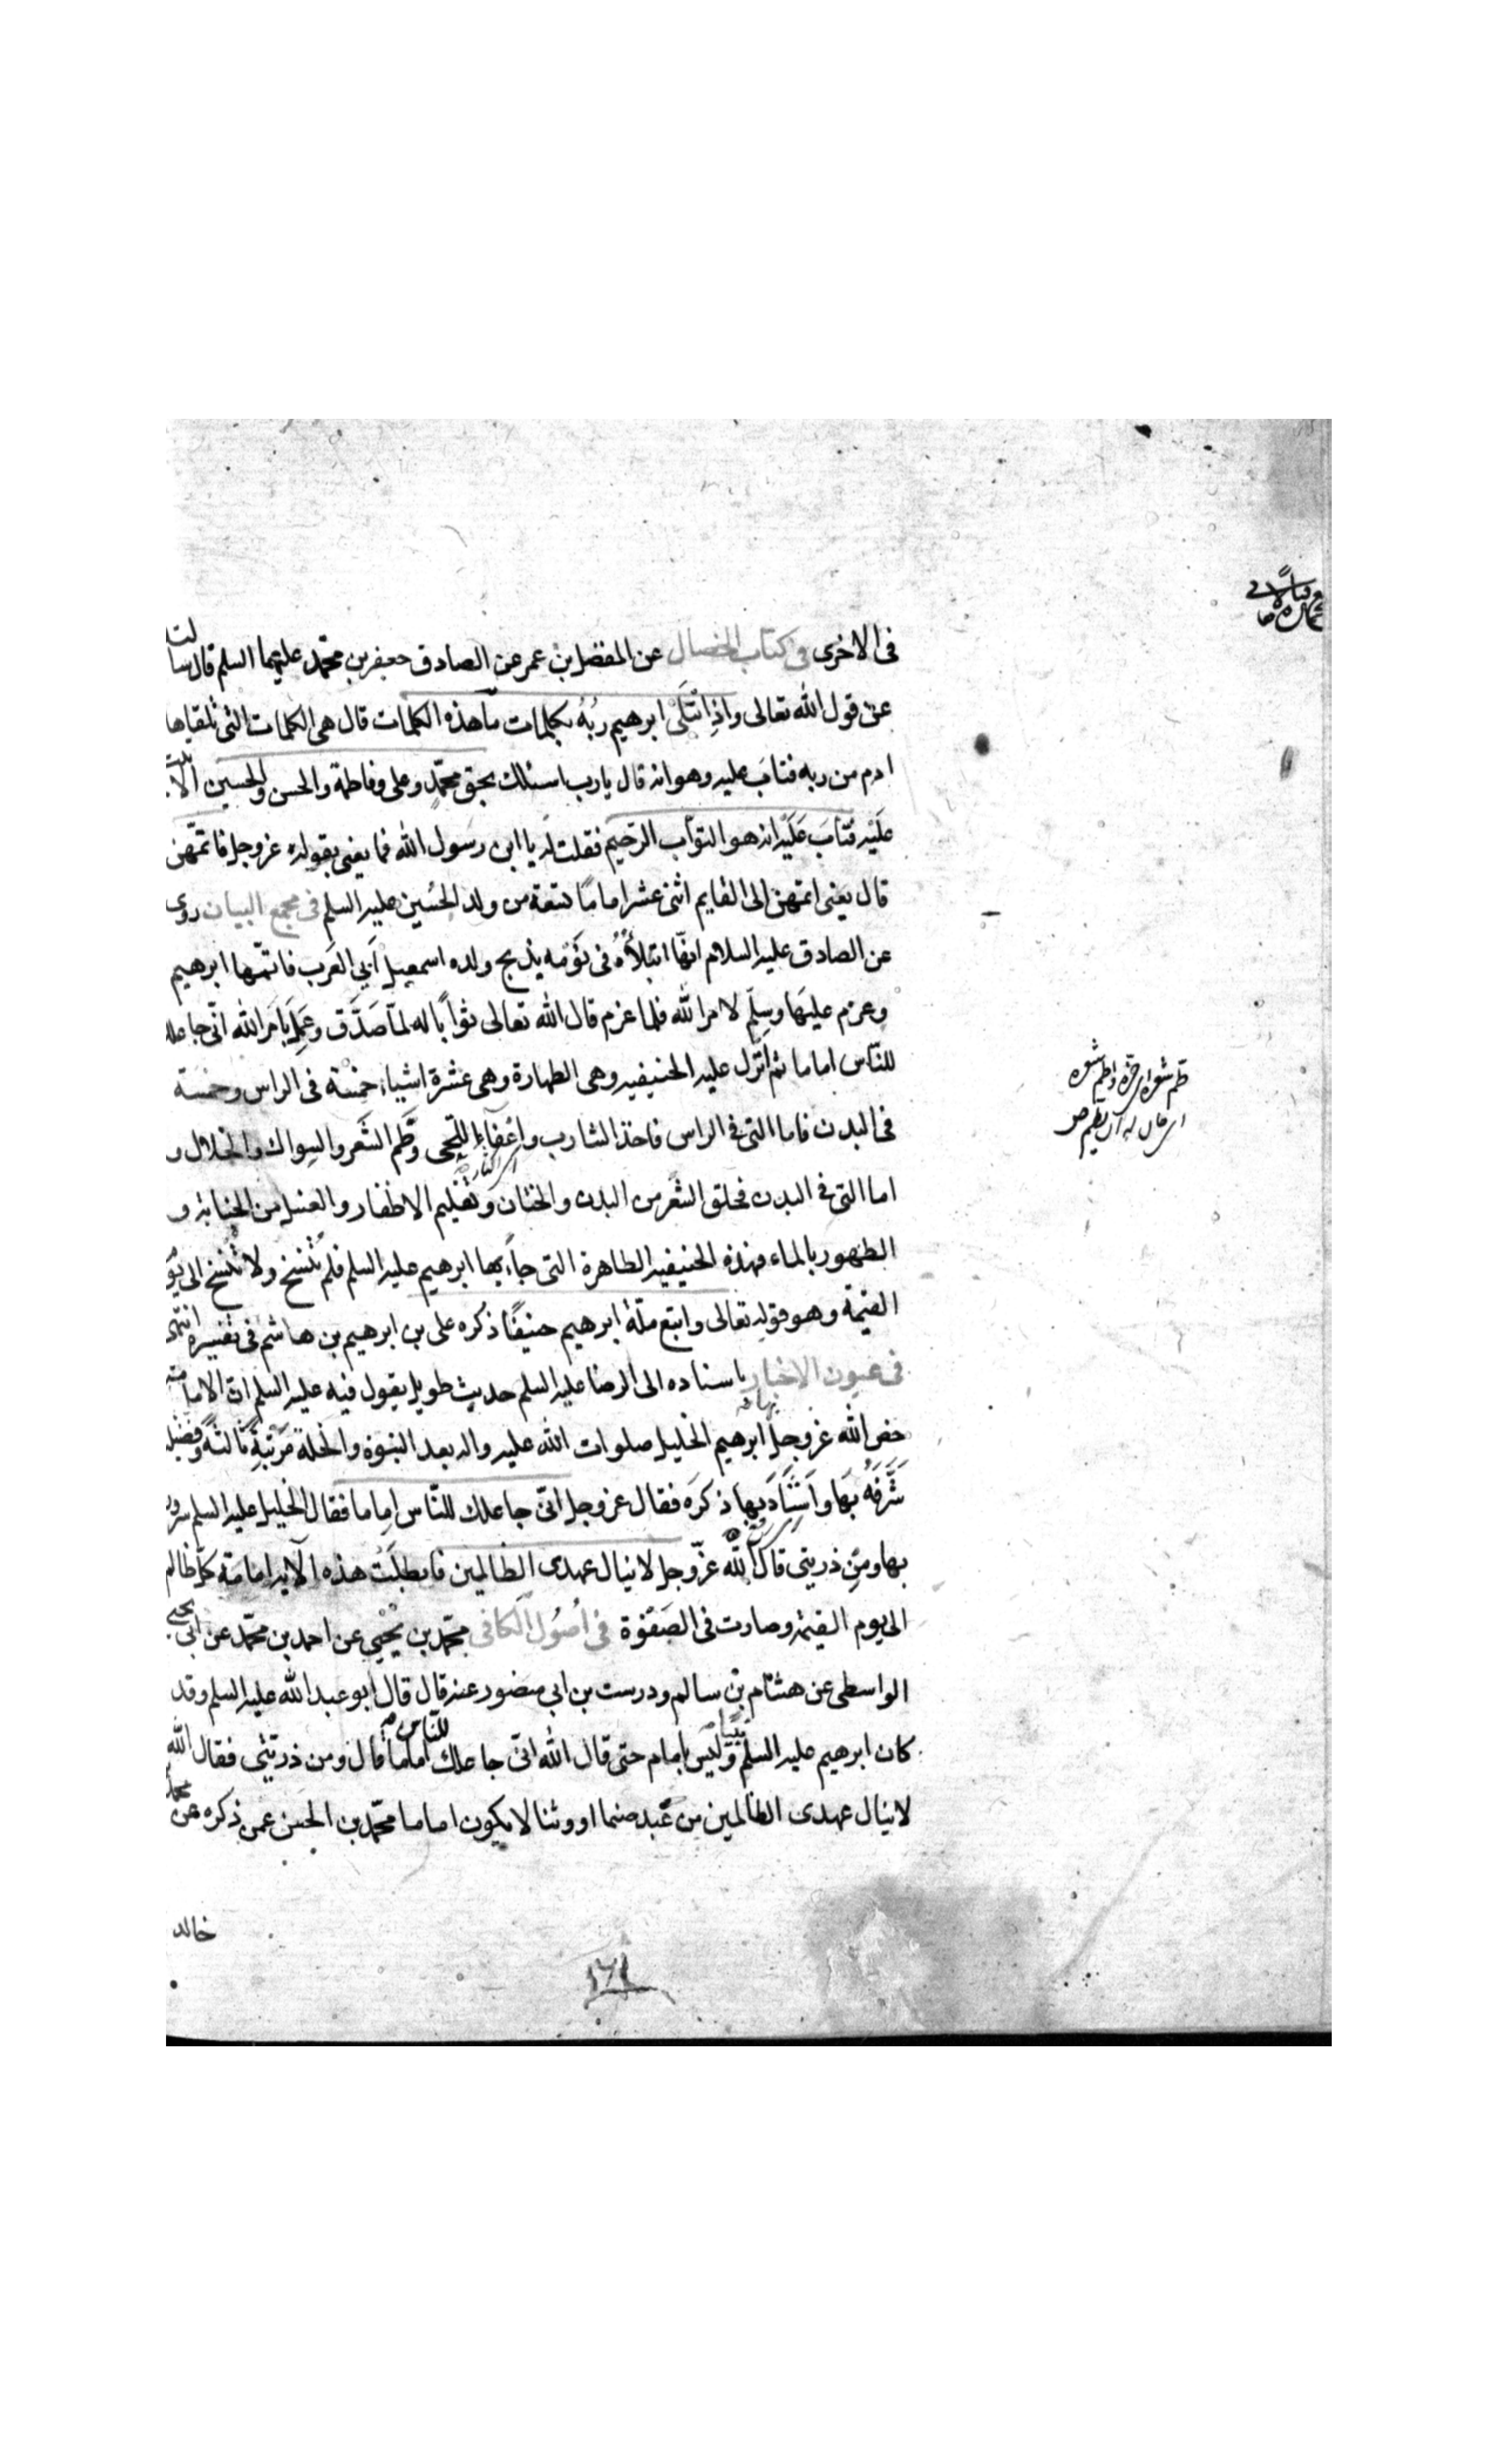 فى الاخرى فى كتاب الخصال عن المفضل بن عمر عن الصادق جعفر بن محمّد عليهما السلم قال سالت
عن قول الله تعالى واذِ ابتَلَى ابرهيم ربُهُ بكلمات ما هذه الكلمات قال هى الكلمات التى تلقاها
ادم من ربه فتابَ عليه وهو انه قال يا رب اسئلك بحق محمّدٍ وعلى وفاطمة والحسن والحسين الا تبت
علَيْه فتابَ عَلَيْه انه هو التوّاب الرّحيم فقلت له يا ابن رسَول الله فما يعنى بقوله عز وجل فاتمّهن
قال يعنى اتمهن الى القايم اثنى عشر اماماً تسعة من ولد الحُسَين عليه السلم فى مجمع البيان روى
عن الصادق عليه السلام انهّا ابتلاهُ فى نَوْمه بذبح ولده اسمعيل اَبي العَرب فاتمّها ابرهيم
وعزم عليَها وسلِّم لامر الله فلما عزم قال الله تعالى ثواباً له لمّا صَدَّق وعَمِل بامَر الله انّى جاعلك
للنّاس اماما ثم انَزل عليه الحنيفيه وهى الطهارة وهى عشرة اشياء خمسَة فى الراس وخمسة
فى البدن فاما التى فى الراس فاخذ الشارب واعفاء اللحى وطَم الشَعر والسِواك والخلال و
اما التى فى البدن فحلق الشَعر من البدن والختان وتقليم الاظفار والغسل من الجنابة و
الطهور بالماء فهذه الحنيفيه الطاهرة التى جاء بها ابرهيم عليه السلم فلم تُنسَخ ولا تُنسَخ الى يَو
القيمة وهو قوله تعالى واتبع ملّة ابرهيم حنيفًا ذكره على بن ابرهيم بن هاشم فى تفسيره انتهى
فى عيون الاخبار باسناده الى الرضا عليه السلم حديث طويل يقول فيه عليه السلم ان الامامة
خص الله عز وجل بها ابرهيم الخليل صلوات الله عليه واله بعد النبوة والخلة مرَتبَةً ثالثةً وفضيلة
شَّرفَهُ بَها واَشَادَ بها ذكرَه فقال عز وجل انىّ جاعلك للنّاس اماما فقال الخليل عليه السلم سرورا
بها ومِن ذريتى قال الله عزّ وجل لا ينال عهدى الظالمين فابطلَت هذه الآيه امامَة كلّ ظالم
الى يوم القيمة وصارت فى الصَفْوة فى اُصُول الكافى محمّد بن يَحْيىٰ عن احمد بن محمّد عن ابى يحيى
الواسطى عن هشام بن سالم ودرست بن ابى منصور عنه قال قال ابو عبد الله عليه السلم وقد
كان ابرهيم عليه السلم نبيًا وليَس بإمام حتى قال الله انىّ جاعلك للنّاس اماما قال ومن ذريتّى فقال الله
لا ينال عهدى الظالمين من عَبد صنما او وثنا لا يكون اماما محمّد بن الحسَن عمن ذكره عن محمد
طم شعره اى جزه واطم شعره
اى حان له ان يطم ص
خالد